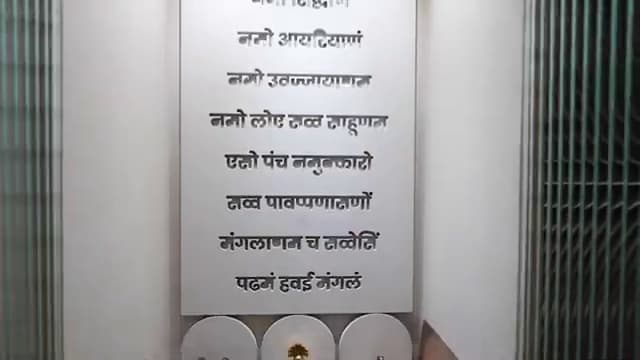 नमो सिद्धाणं
नमो आयरियाणं
नमो उवज्जायाणम
नमो लोए सव्व साहूणम
एसो पंच नमुक्कारो
सव्व पावप्पणासणों
मंगलाणम च सव्वेसिं
पढमं हवई मंगलं